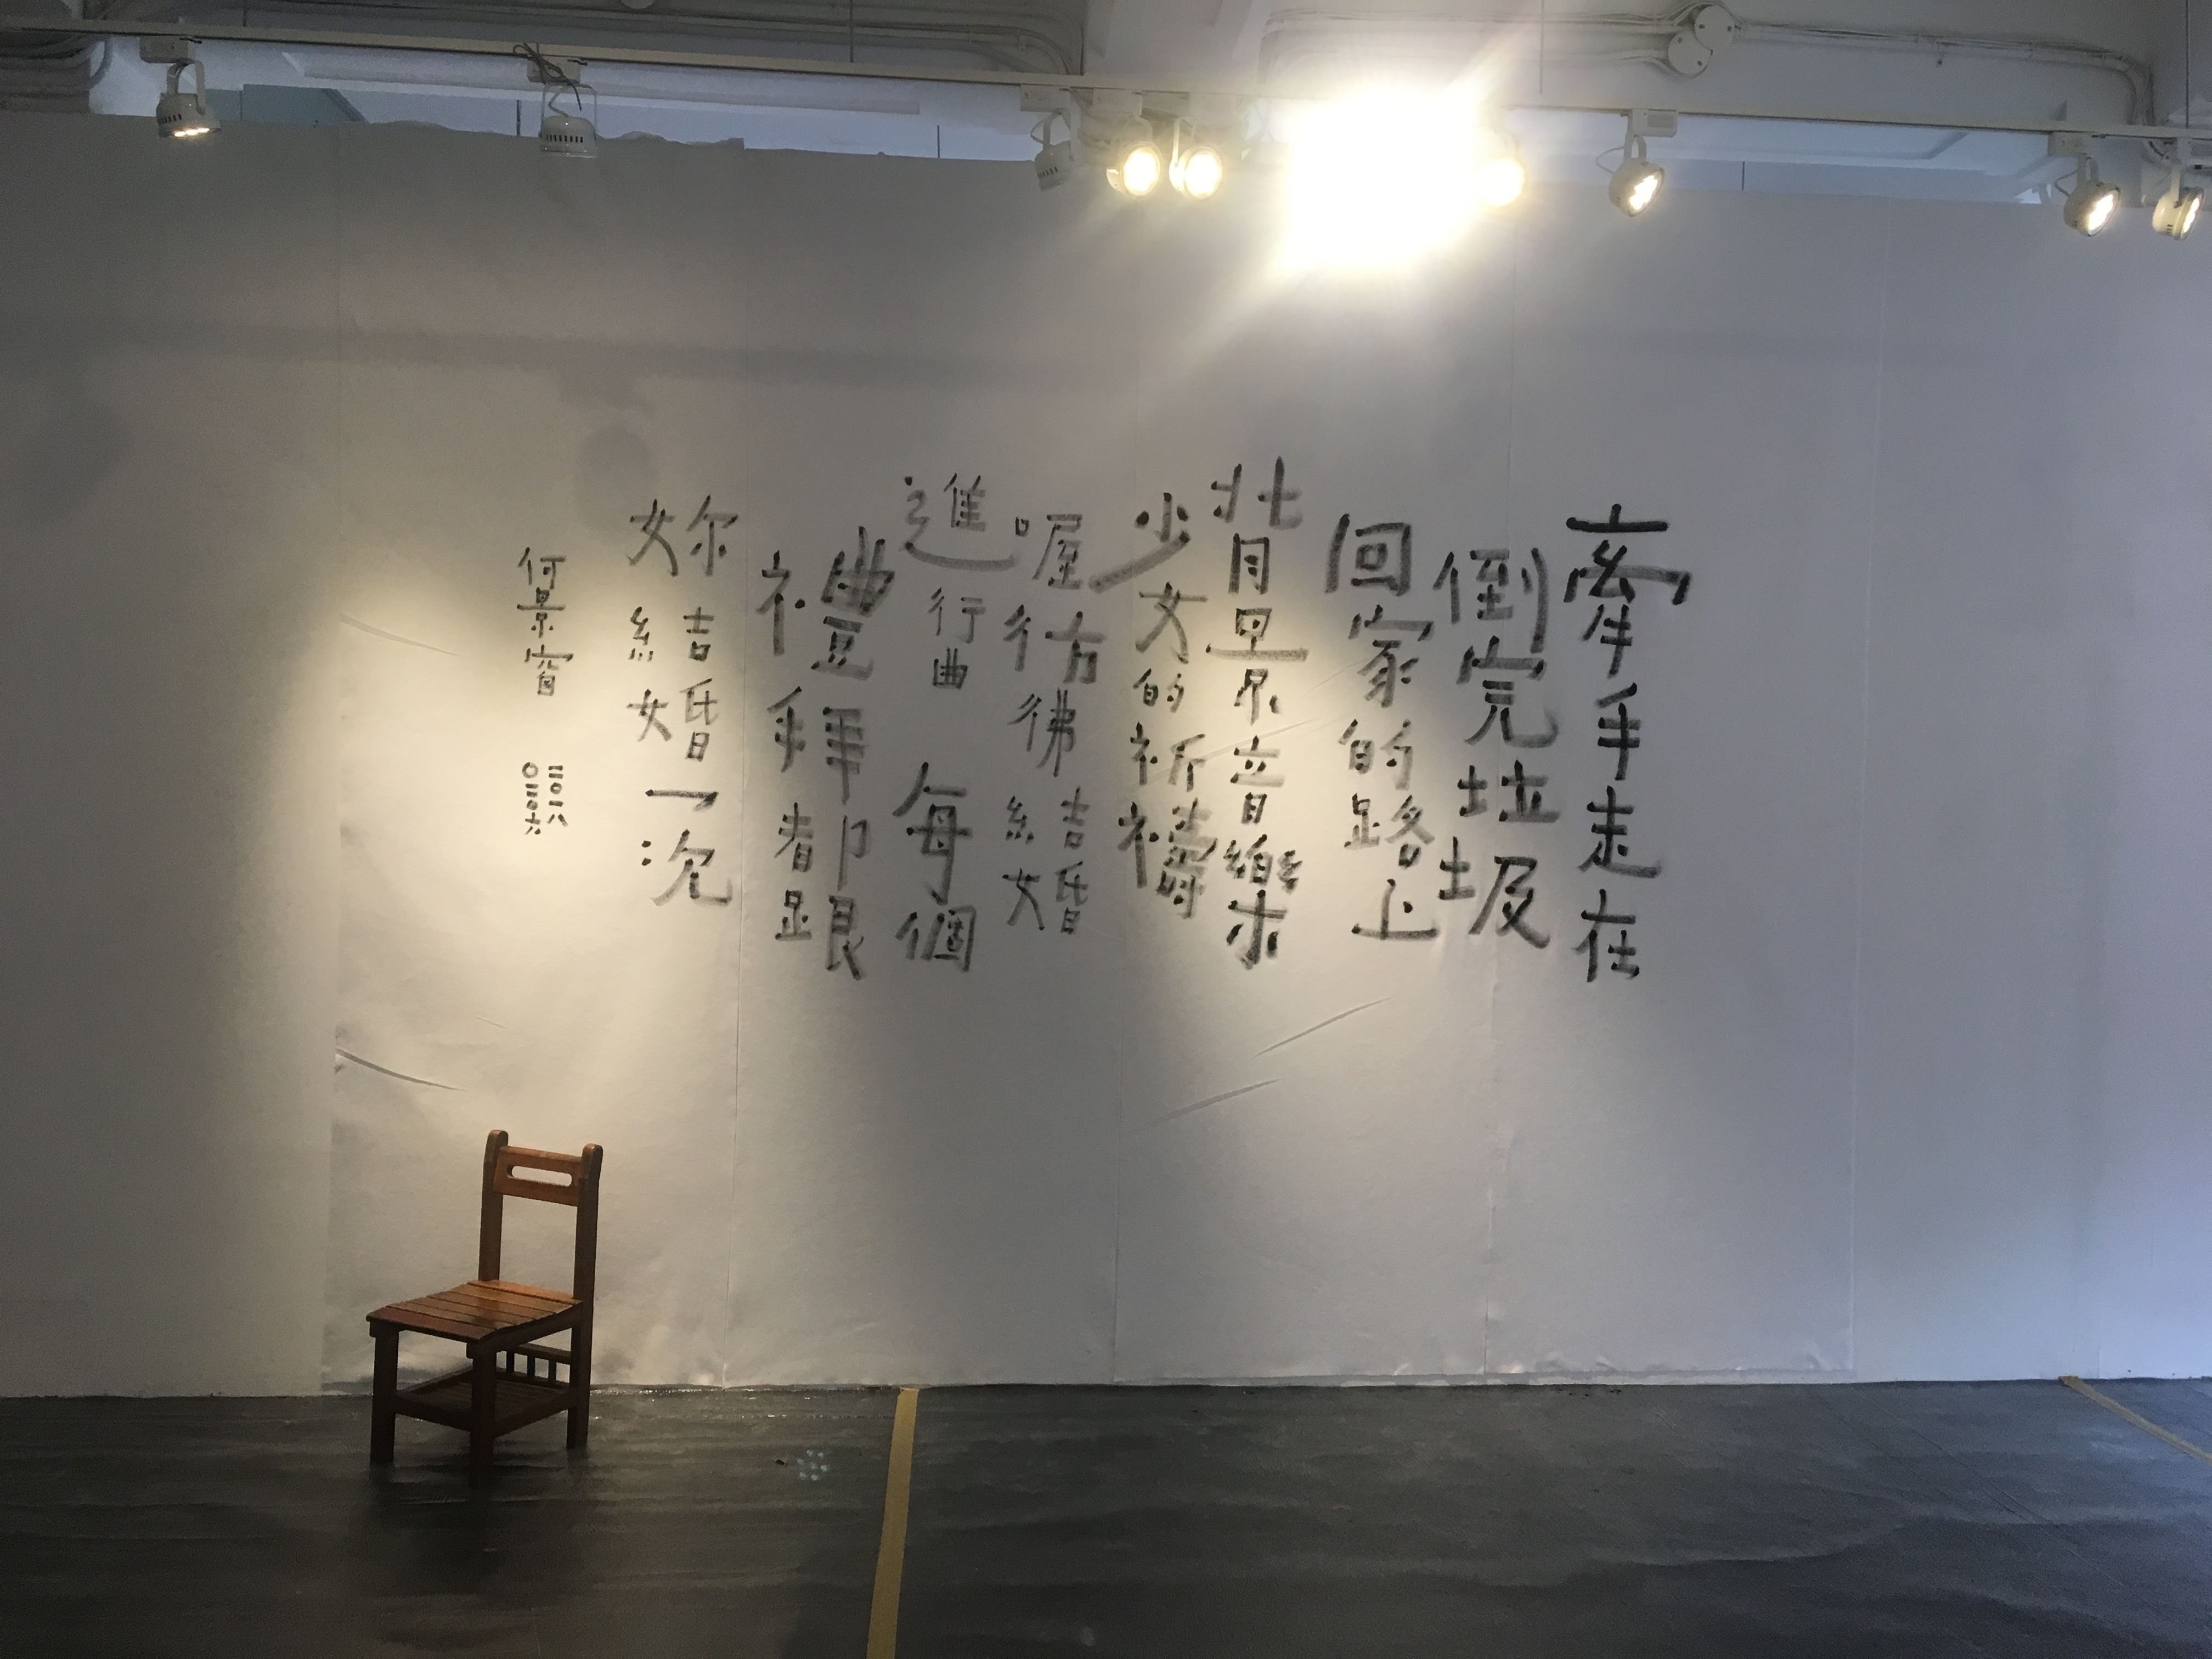 牽手走在
倒完垃圾
回家的路上
背景音樂
少女的祈禱
喔彷彿結婚
進行曲 每個
禮拜都跟
妳結婚一次
何景窗
二〇一八
〇二〇六